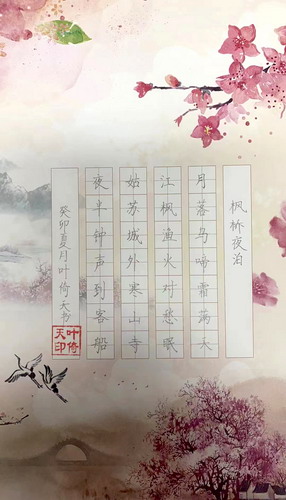 枫桥夜泊
月落乌啼霜满天
江枫渔火对愁眠
姑苏城外寒山寺
夜半钟声到客船
癸卯夏月叶倚天书
叶倚
天印